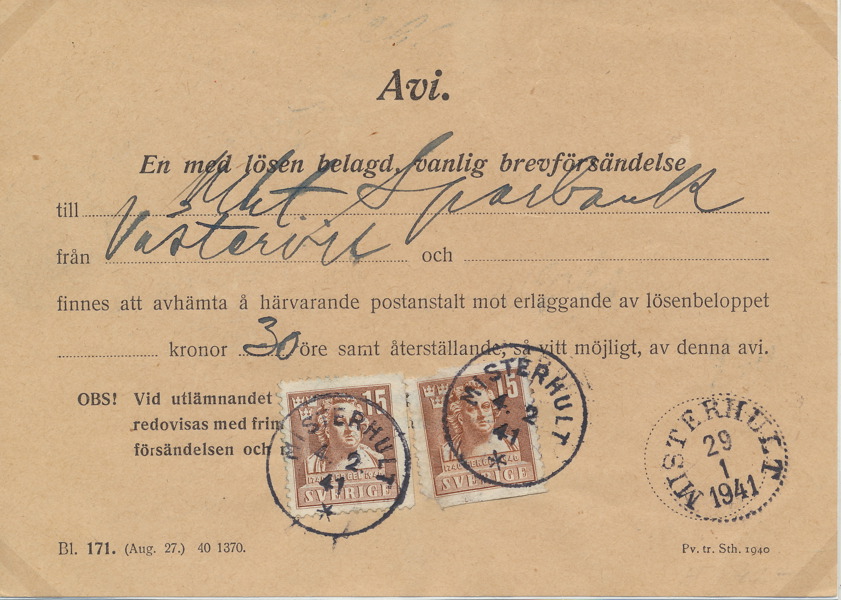 Avi.
En med lösen belagd, vanlig brevförsändelse
till Mht Sparbank
från Västervik och
finnes att avhämta å härvarande postanstalt mot erläggande av lösenbeloppet
kronor 30 öre samt återställande, så vitt möjligt, av denna avi.
OBS! Vid utlämnandet
redovisas med frim
försändelsen och
15
SVERIGE
MISTERHULT
4. 2
41
15
SVERIGE
MISTERHULT
4. 2
41
MISTERHULT
29
1
1941
Bl. 171. (Aug. 27.) 40 1370.
Pv. tr. Sth. 1940